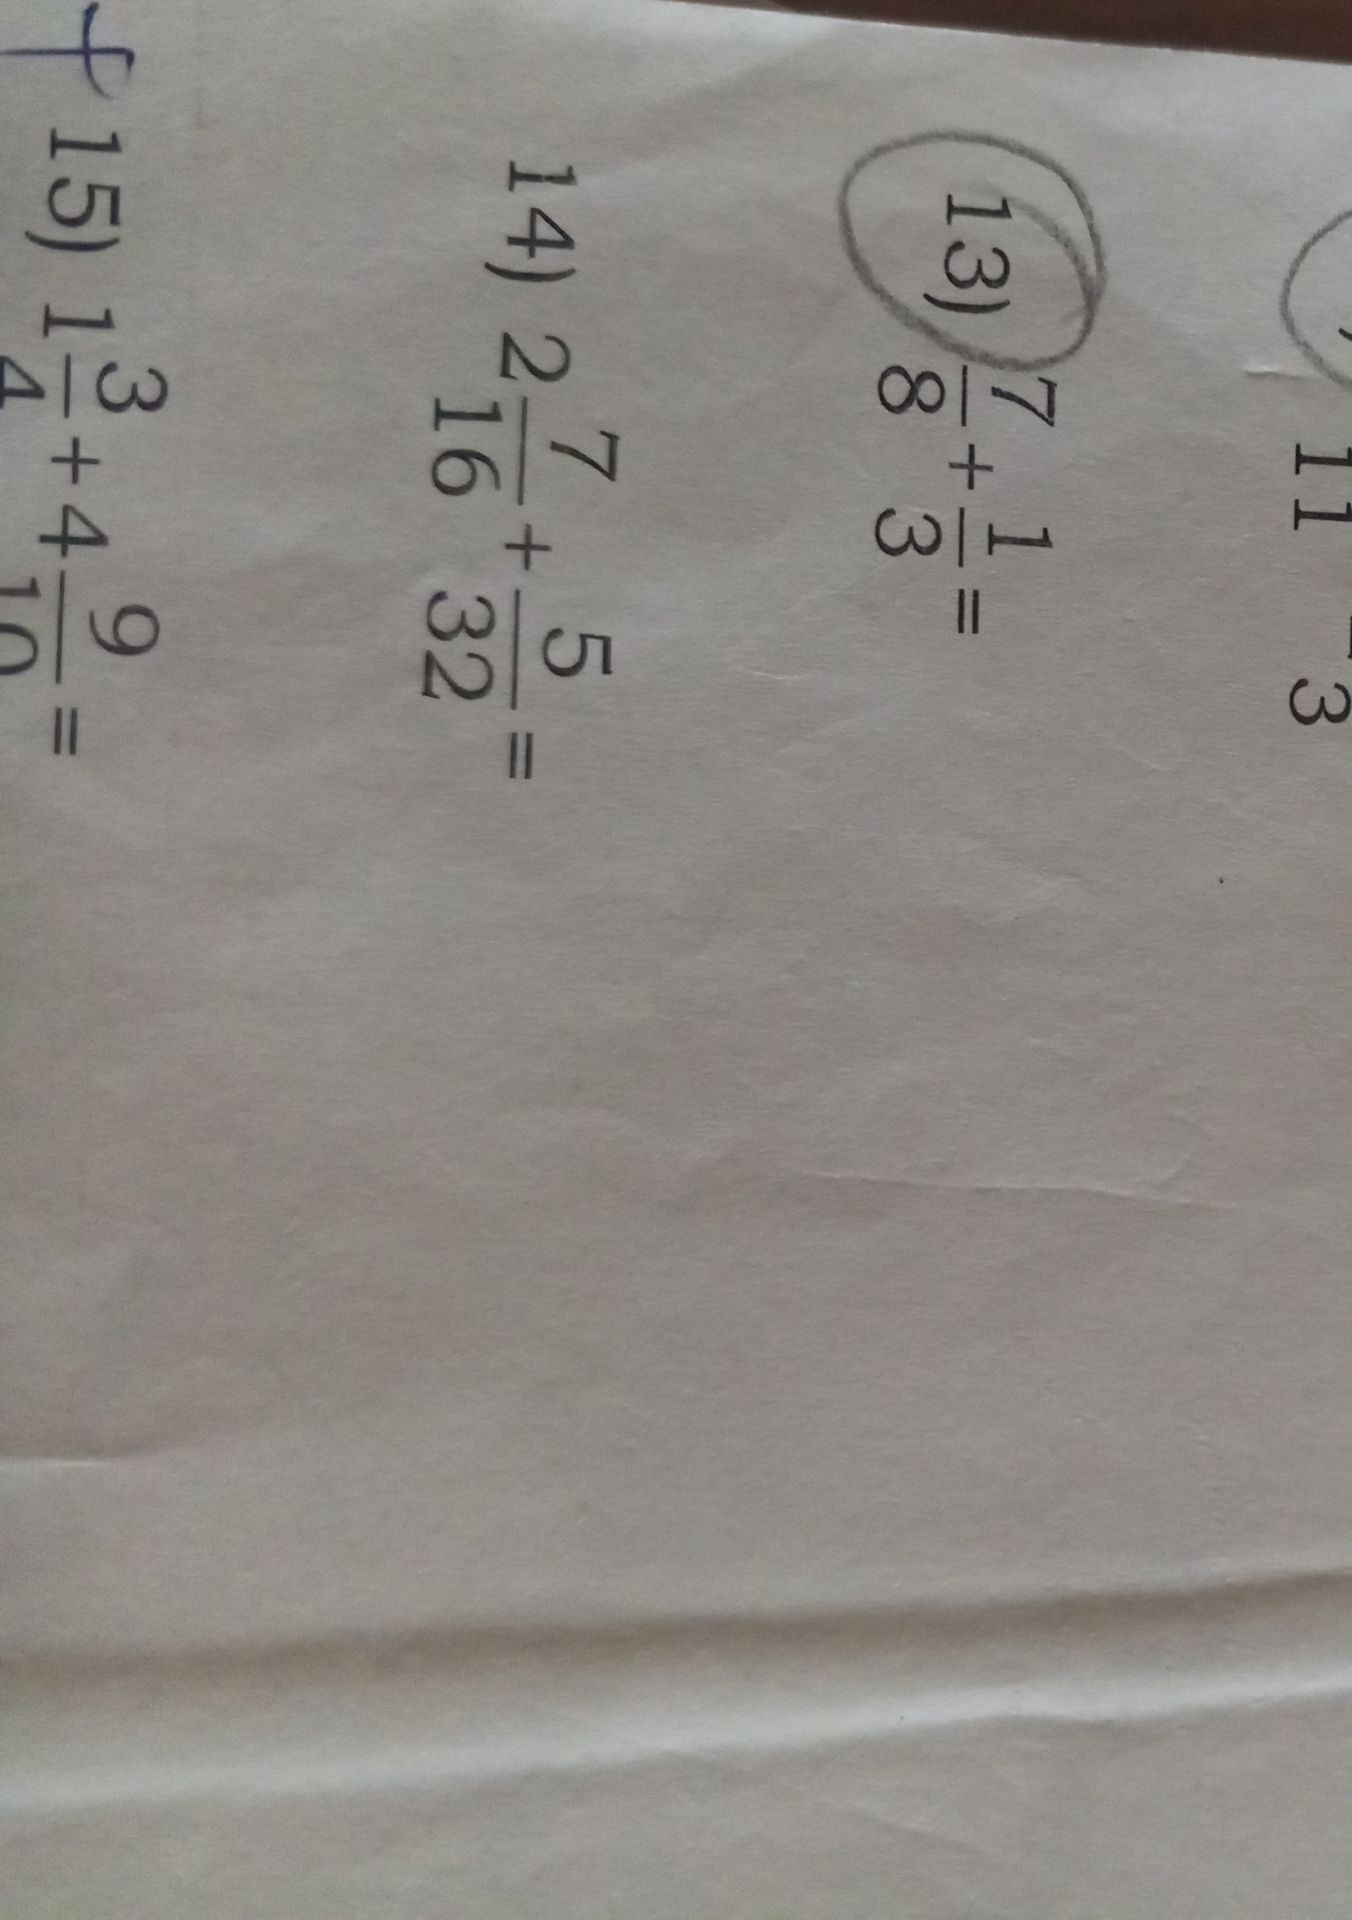 11 3
13) 7/8 + 1/3 =
14) 2 7/16 + 5/32 =
+ 15) 1 3/4 + 4 9/10 =